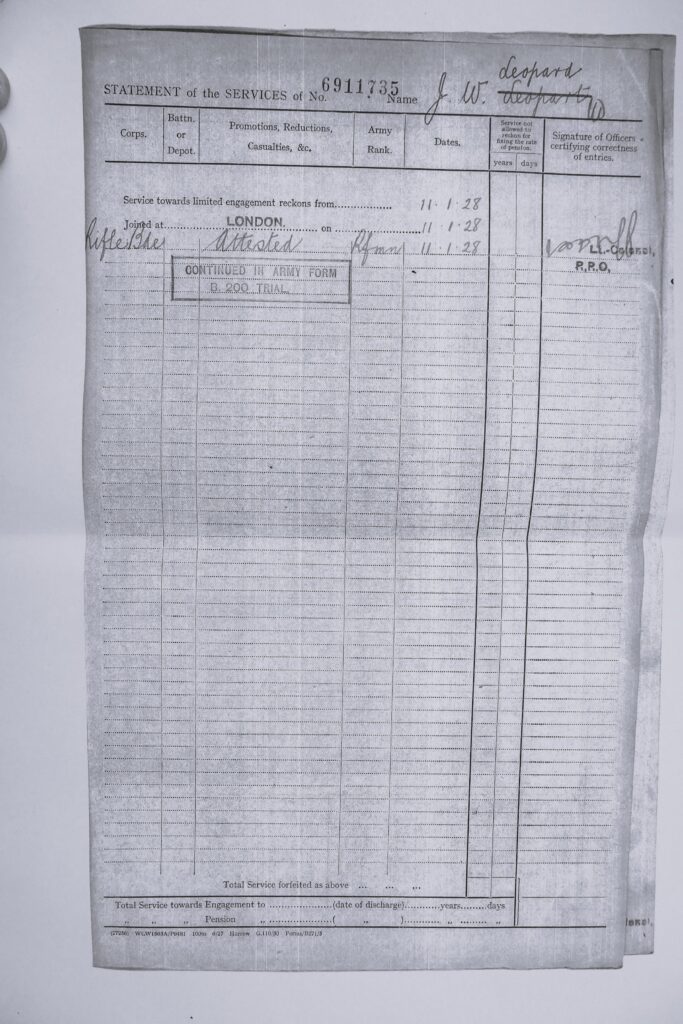 leopard
STATEMENT of the SERVICES of No. 6911735 Name J. W. leopart
Corps.
Battn. or Depot.
Promotions, Reductions, Casualties, &c.
Army Rank.
Dates.
Service not allowed to reckon for fixing the rate of pension.
years days
Signature of Officers certifying correctness of entries.
Service towards limited engagement reckons from.................. 11 . 1 . 28
Joined at LONDON. on 11 . 1 . 28
Rifle Bde Attested Rfmn 11 . 1 . 28 Lt.-Colonel,
R.R.O,
CONTINUED IN ARMY FORM
B. 200 TRIAL.
Total Service forfeited as above ... ... ...
Total Service towards Engagement to ..................(date of discharge)..........years.........days
„ „ „ Pension „ .....................( „ )............ „ ......... „